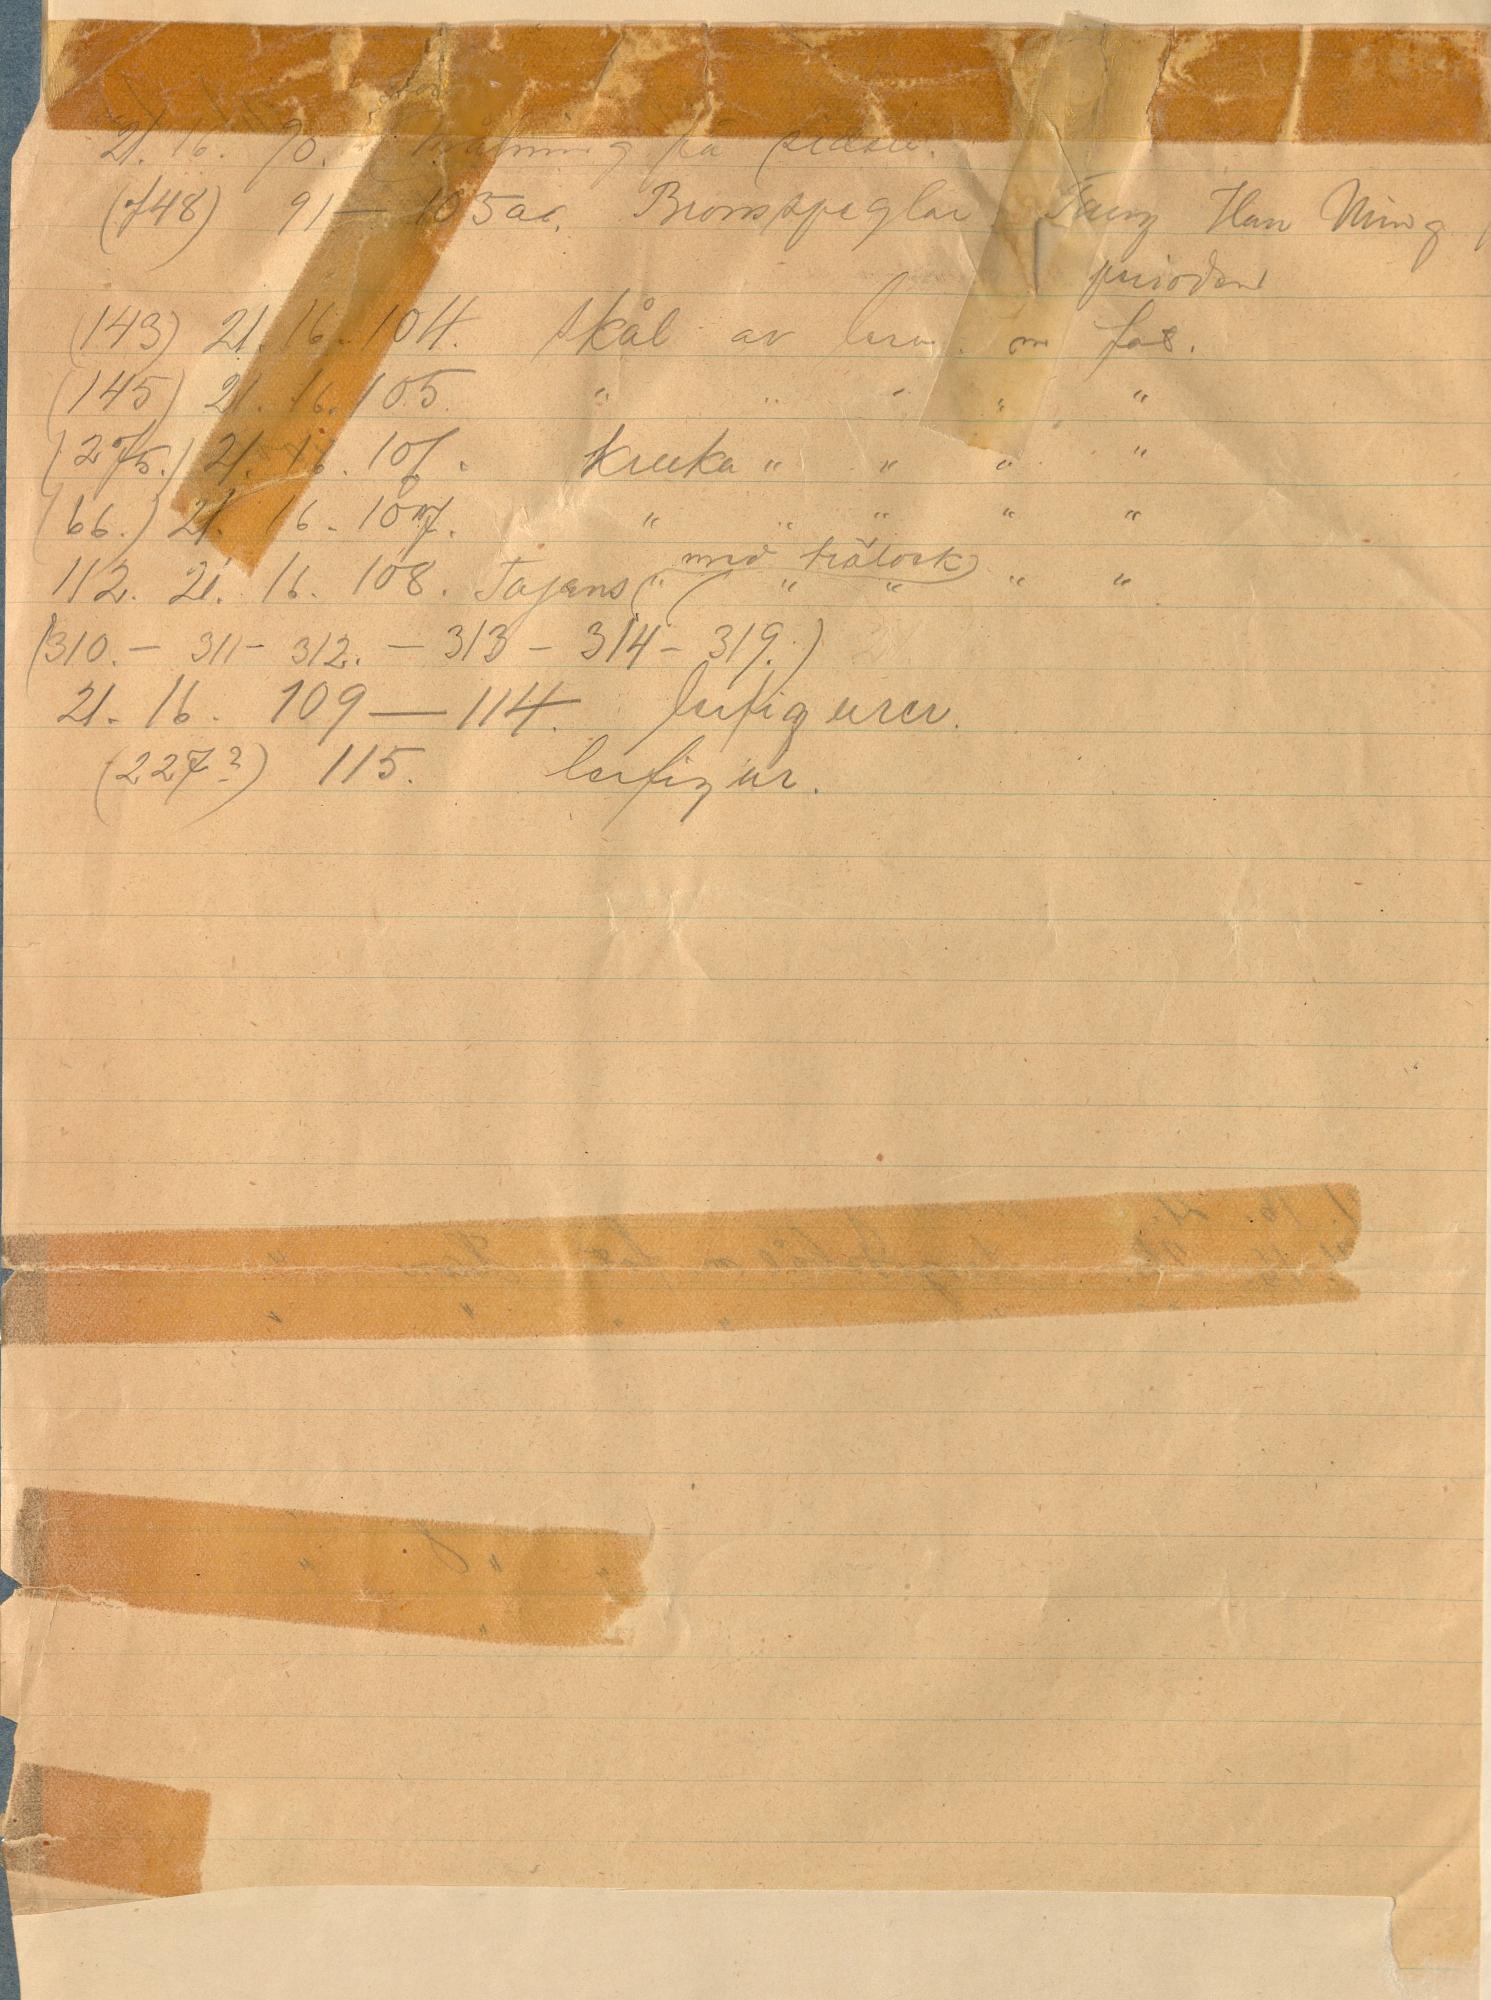 21. 16. 90. Målning på siden.
(748) 91 — 103aa. Bronsspeglar Tang Han Ming
perioden
(143) 21. 16. 104. Skål av lera. m fot.
(145) 21. 16. 105. " " " " "
(275.) 21. 16. 106. kruka " " " "
(66.) 21. 16. 107. " " " " "
med trälock
112. 21. 16. 108. Tajens (" ( " " " "
(310. – 311 – 312. – 313 – 314 – 319.)
21. 16. 109 — 114. lerfigurer.
(227?) 115. lerfigur.